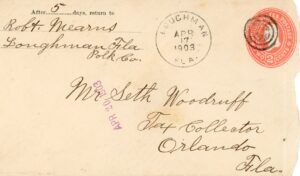 After 5 days, return to
Robt. Mearns
Loughman Fla
Polk Co.
LOUGHMAN
APR
17
1903
FLA.
2
APR 20 1903
Mr Seth Woodruff
Tax Collector
Orlando
Fla.